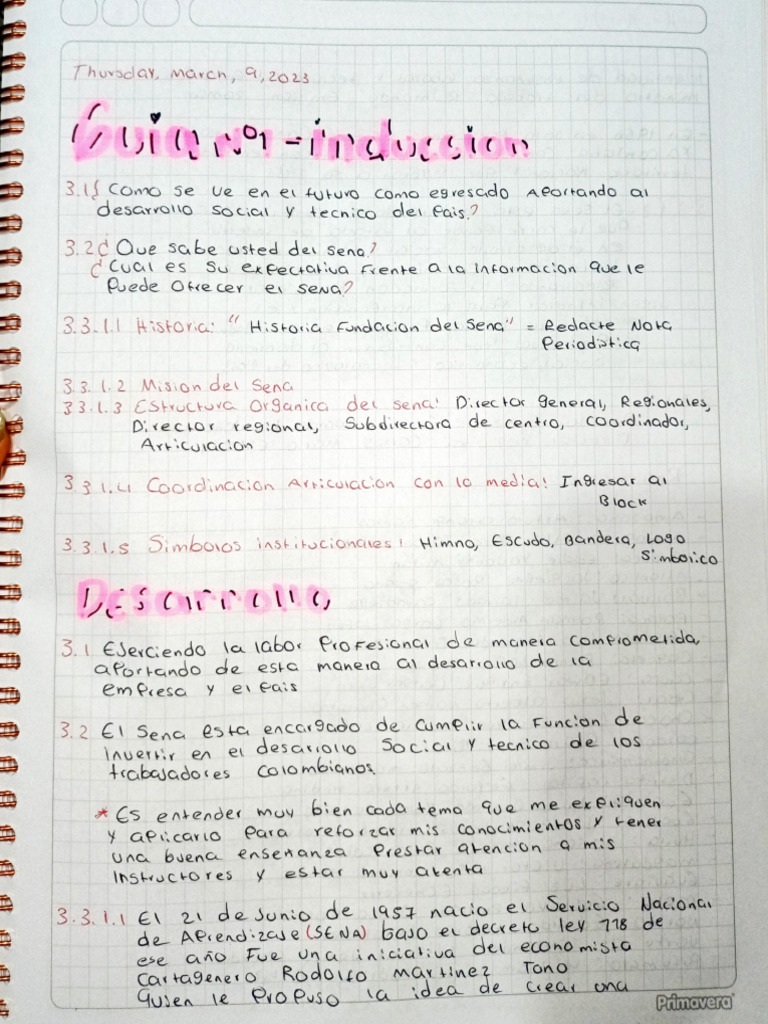 Thursday, March, 9, 2023
Guia N°1 - induccion
3.1 ¿ Como se ve en el futuro como egresado Aportando al
desarrollo social y tecnico del Pais?
3.2 ¿ Que sabe usted del sena?
¿ Cual es su expectativa Frente a la informacion que le
Puede Ofrecer el SENA?
3.3.1.1 Historia: " Historia Fundacion del Sena" = Redacte Nota
Periodistica
3.3.1.2 Mision del Sena
3 3.1.3 Estructura Organica del sena: Director general, Regionales,
Director regional, Subdirectora de centro, Coordinador,
Articulacion
3.3 1.4 Coordinacion Articulacion con la media: Ingresar al
Block
3.3.1.5 Simbolos institucionales: Himno, Escudo, Bandera, Logo
Simbolico
Desarrollo
3.1 Ejerciendo la labor Profesional de manera comprometida,
aportando de esta manera al desarrollo de la
empresa y el Pais
3.2 El Sena esta encargado de cumplir la Funcion de
Invertir en el desarrollo Social y tecnico de los
trabajadores Colombianos.
* Es entender muy bien cada tema que me expliquen
y aplicarlo para reforzar mis conocimientos y tener
una buena enseñanza Prestar atencion a mis
Instructores y estar muy atenta
3.3.1.1 El 21 de Junio de 1957 nacio el Servicio Nacional
de Aprendizaje (SENA) bajo el decreto ley 118 de
ese año Fue una iniciativa del economista
Cartagenero Rodolfo Martinez Tono
Quien le Propuso la idea de crear una
Primavera